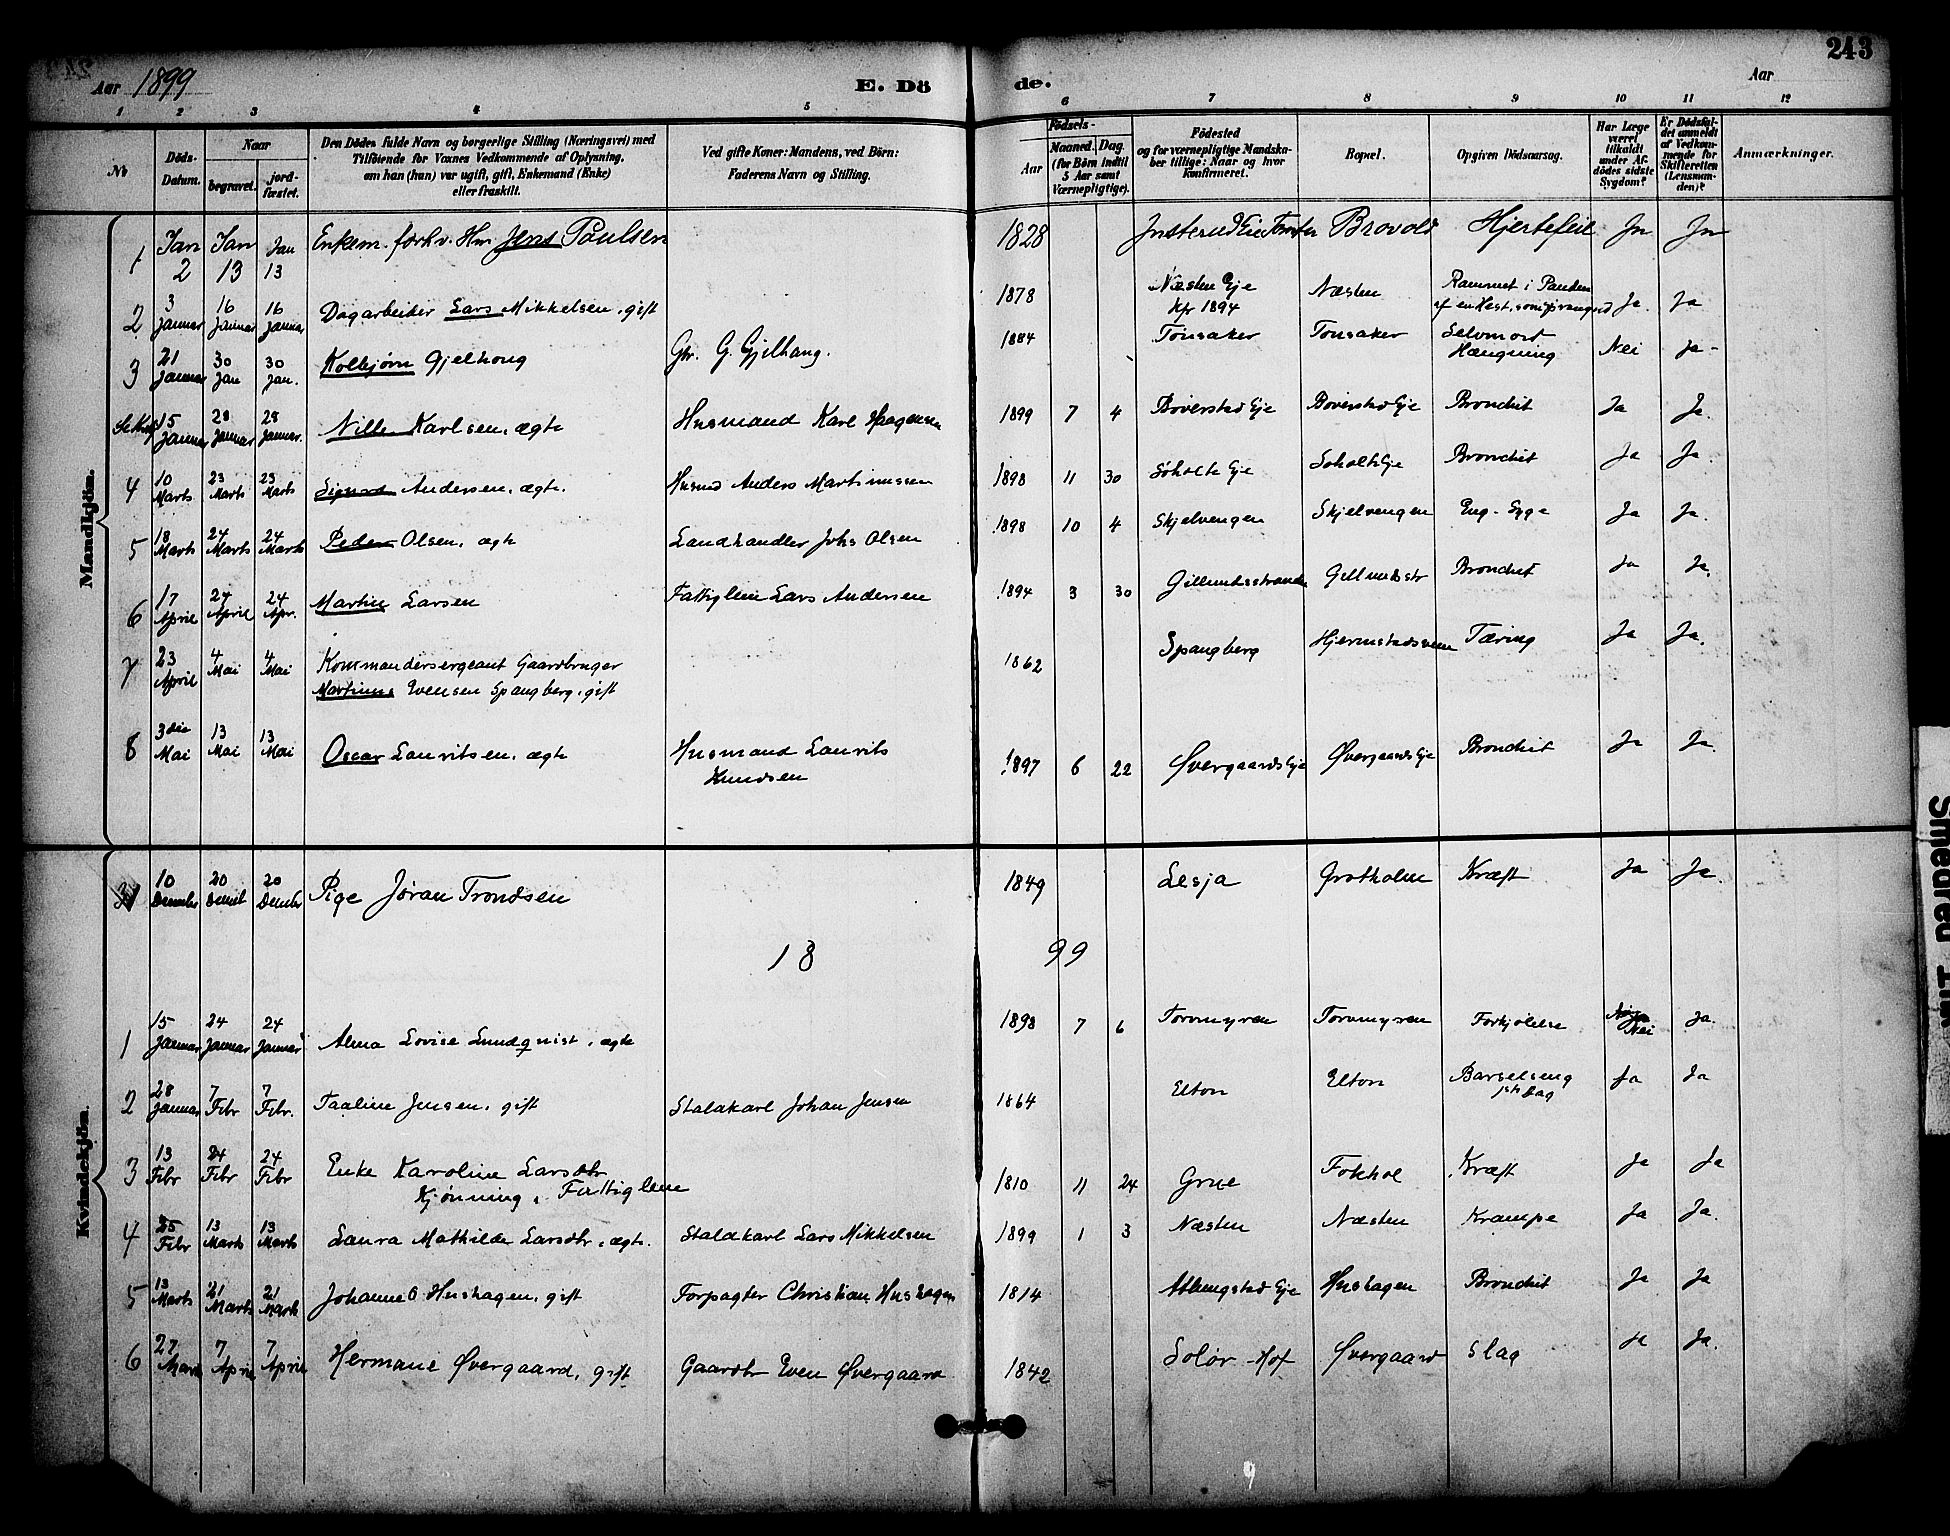 243
Aar 1899
E. Dö
de.
Aar
1 2 3 4 5 6 7 8 9 10 11 12
№
Döds-Datum.
Naar
begravet.
jord-fæstet.
Den Dödes fulde Navn og borgerlige Stilling (Næringsvei) med
Tilföiende for Voxnes Vedkommende af Oplysning,
om han (hun) var ugift, gift, Enkemand (Enke)
eller fraskilt.
Ved gifte Koner: Mandens, ved Börn:
Faderens Navn og Stilling.
Födsels-
Aar
Maaned. Dag
(for Börn indtil
5 Aar samt
Værnepligtige).
Födested
og for værnepligtige Mandska-
ber tillige: Naar og hvor
konfirmeret.
Bopæl.
Opgiven Dödsaarsag.
Har Læge
været
tilkaldt
under Af-
dödes sidste
Sygdom?
Er Dödsfal-
det anmeldt
af Vedkom-
mende for
Skifteretten
(Lensman-
den)?
Anmærkninger.
Mandkjön.
1 Jan 2 Jan 13 Jan 13 Enkem. forhv. Hm Jens Paulsen 1828 Brovold Hjertefeil Ja Ja
2 3 Januar 16 Januar 16 Januar Dagarbeider Lars Mikkelsen, gift 1878 Næsten Eje Kfr 1894 Næsten Rammet i Panden af en Hest, som sprang ud Ja. Ja
3 21 Januar 30 Jan 30 Jan. Kolbjørn Gjelhoug Gbr. G. Gjelhaug. 1884 Tønsaker Tonsaker Selvmord Hængning Nei Ja-
15 Januar 28 Januar 28 Januar. Nille Karlsen, ægte Husmand Karl Haagensen 1899 7 4 Boverstad Eje Boverstad Eje Bronchit Ja Ja.
4 10 Marts 23 Marts 23 Marts Sigurd Andersen, ægte. Husmd Anders Martinussen 1898 11 30 Søholte Eje Soholt Eje Bronchit Ja Ja.
5 18 Marts 24 Marts 24 Marts Peder Olsen, ægte Landhandler Johs Olsen 1898 10 4 Skjelvengen Skjelvengen Eng. Syge Ja Ja.
6 17 April 24 April 24 Apr. Martin Larsen Fattiglem Lars Andersen 1894 3 30 Gillundsstranden Gillundsstr Bronchit Ja Ja.
7 23 April 4 Mai 4 Mai Kommandersergeant Gaardbruger
Martinus Evensen Spangberg, gift 1862 Spangberg Tæring Ja Ja.
8 3die Mai 13 Mai 13 Mai Oscar Lauritsen, ægte Husmand Laurits
Knudsen 1897 6 22 Øvergaards Eje Øvergaards Eje Bronchit Ja Ja.
Kvindekjön.
10 December 20 Decmbr 20 Decmbr Pige Jøran Trondsen 1849 Lesja Grotholm Kræft Ja Ja.
18 99
1 15 Januar 24 Januar 24 Januar Alma Lovise Lundquist, ægte 1898 7 6 Torvmyren Torvmyren Forkjølelse Nei Ja.
2 28 Januar 7 Febr 7 Febr. Paaline Jensen, gift Staldkarl Johan Jensen 1864 Elton Elton Barselseng 1ste Dag Ja Ja
3 13 Febr 24 Febr 24 Febr Enke Karoline Larsdtr
Kjønning, Fattiglem 1810 11 24 Grue Fokhol Kræft Ja Ja
4 25 Febr 13 Marts 13 Marts Laura Mathilde Larsdtr, ægte. Staldkarl Lars Mikkelsen 1899 1 3 Næsten Næsten Krampe Ja Ja.
5 13 Marts 21 Marts 21 Marts Johanne O Hushagen, gift Forpagter Christian Hushagen 1814 Hushagen Bronchit Ja Ja
6 27 Marts 7 April 7 April Hermanie Øvergaard, gift Gaardbr Even Øvergaard 1842 Solør-Hof Øvergaard Slag Ja Ja.
9
Smedred Ink